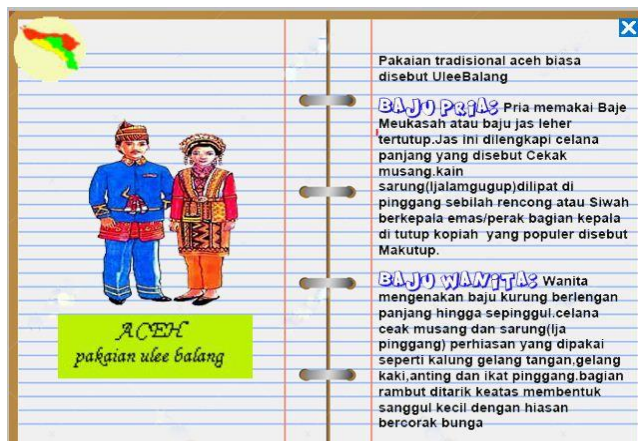 ACEH
pakaian ulee balang
Pakaian tradisional aceh biasa
disebut UleeBalang
BAJU PRIA: Pria memakai Baje
Meukasah atau baju jas leher
tertutup.Jas ini dilengkapi celana
panjang yang disebut Cekak
musang.kain
sarung(Ijalamgugup)dilipat di
pinggang sebilah rencong atau Siwah
berkepala emas/perak bagian kepala
di tutup kopiah yang populer disebut
Makutup.
BAJU WANITA: Wanita
mengenakan baju kurung berlengan
panjang hingga sepinggul.celana
ceak musang dan sarung(Ija
pinggang) perhiasan yang dipakai
seperti kalung gelang tangan,gelang
kaki,anting dan ikat pinggang.bagian
rambut ditarik keatas membentuk
sanggul kecil dengan hiasan
bercorak bunga